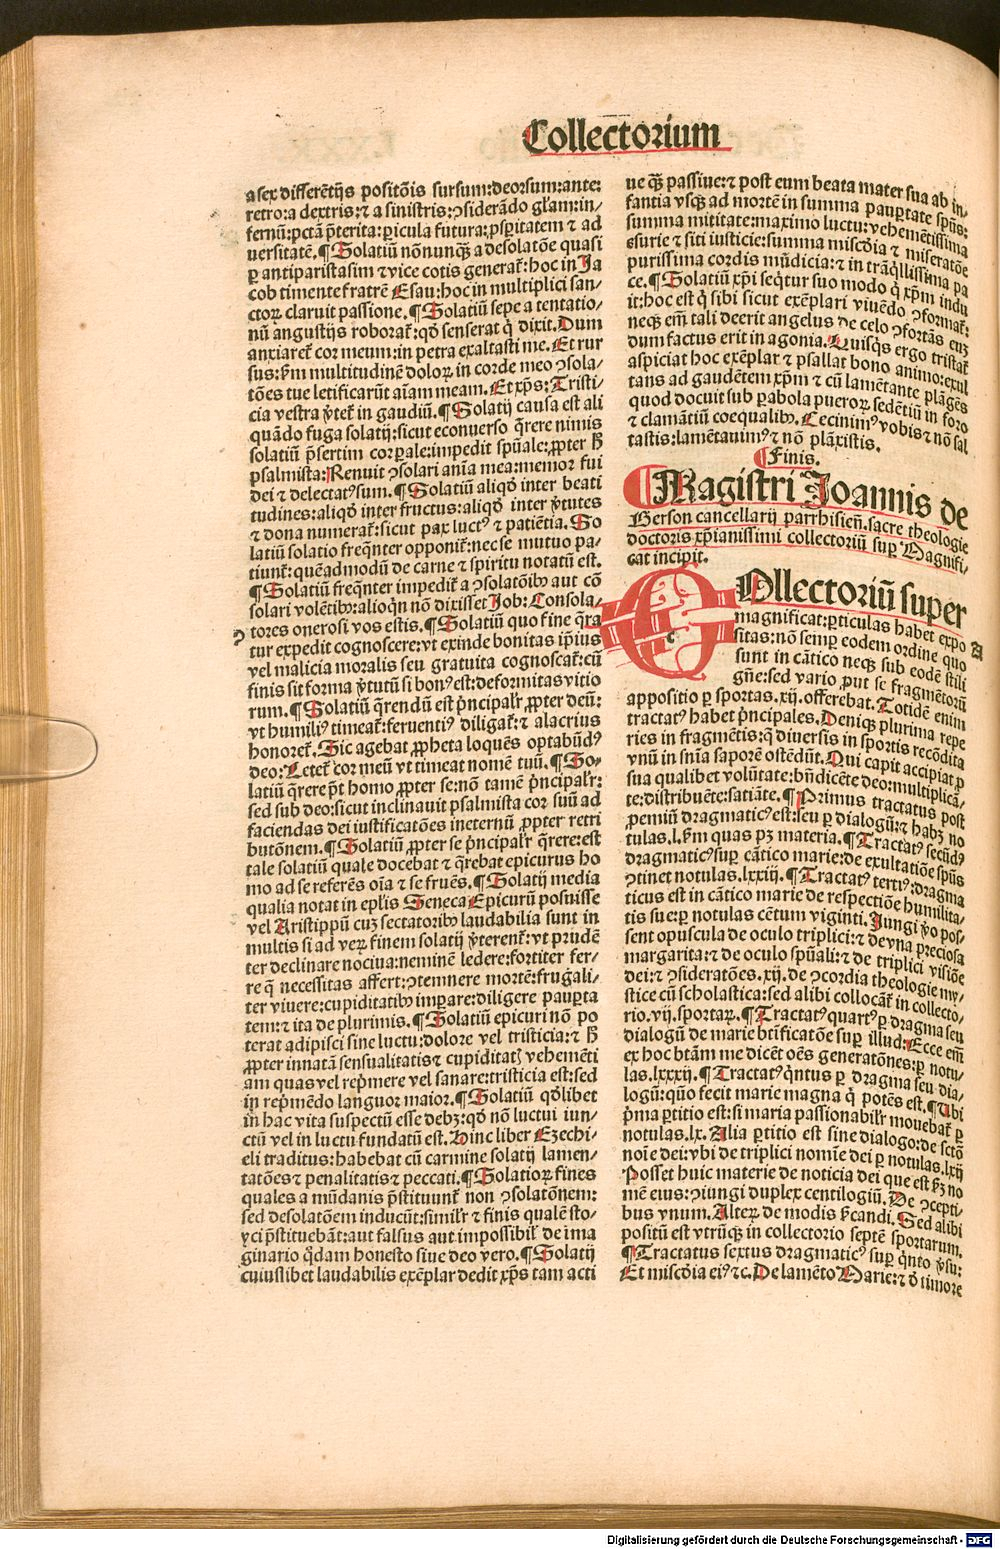 Collectorium
a sex differētijs positōis sursum:deorsum:ante:
retro:a dextris:⁊ a sinistris:ꝯsiderādo gl'am:in-
fernū:pctā p̄terita:ꝑicula futura:ꝓsꝑitatem ⁊ ad
uersitatē.¶Solatiū nōnunqꝫ a desolatōe quasi
ꝑ antiparistasim ⁊ vice cotis generat̄:hoc in Ja
cob timente fratrē Esau:hoc in multiplici san-
ctoꝝ claruit passione.¶Solatiū sepe a tentatio-
nū angustijs roborat̄:qđ senserat q̄ dixit.Dum
anxiaret̄ cor meum:in petra exaltasti me.Et rur
sus:ẜm multitudinē doloꝝ in corde meo ꝯsola-
tōes tue letificarūt aīam meam.Et xp̄s:Tristi-
cia vestra ṽtet̄ in gaudiū.¶Solatij causa est ali
quādo fuga solatij:sicut econuerso q̄rere nimis
solatiū p̄sertim corꝑale:impedit spūale:ꝓpter ꝙ
psalmista:Renuit ꝯsolari anīa mea:memor fui
dei ⁊ delectatꝰ sum.¶Solatiū aliqđ inter beati
tudines:aliqđ inter fructus:aliqđ inter ṽtutes
⁊ dona numerat̄:sicut pax luctꝰ ⁊ patiētia.So
latiū solatio freqn̄ter opponit̄:nec se mutuo pa-
tiunt̄:quēadmodū de carne ⁊ spiritu notatū est.
¶Solatiū freqn̄ter impedit̄ a ꝯsolatōibꝰ aut cō
solari volētibꝰ:alioqn̄ nō dixisset Job:Consola-
tores onerosi vos estis.¶Solatiū quo fine q̄ra
tur expedit cognoscere:vt exinde bonitas ip̄ius
vel malicia moralis seu gratuita cognoscat̄:cū
finis sit forma ṽtutū si bonꝰ est:deformitas vitio
rum.¶Solatiū q̄rendū est p̄ncipalr̄ ꝓpter deū:
vt humiliꝰ timeat̄:feruentiꝰ diligat̄:⁊ alacrius
honoret̄.Sic agebat ꝓpheta loquēs optabūdꝰ
deo:Letet̄ cor meū vt timeat nomē tuū.¶So-
latiū q̄rere pt̄ homo ꝓpter se:nō tamē p̄ncipalr̄:
sed sub deo:sicut inclinauit psalmista cor suū ad
faciendas dei iustificatōes ineternū ꝓpter retri
butōnem.¶Solatiū ꝓpter se p̄ncipalr̄ q̄rere:est
tale solatiū quale docebat ⁊ q̄rebat epicurus ho
mo ad se referēs oīa ⁊ se fruēs.¶Solatij media
qualia notat in epl̄is Seneca Epicurū posuisse
vel Aristippū cuꝫ sectatoribꝰ laudabilia sunt in
multis si ad veꝝ finem solatij ṽterent̄:vt prudē
ter declinare nociua:neminē ledere:fortiter fer-
re q̄ necessitas affert:ꝯtemnere mortē:frugali-
ter viuere:cupiditatibꝰ imꝑare:diligere pauꝑta
tem:⁊ ita de plurimis.¶Solatiū epicuri nō po
terat adipisci sine luctu:dolore vel tristicia:⁊ ꝙ
ꝓpter innatā sensualitatis ⁊ cupiditatꝭ vehemēti
am quas vel rep̄mere vel sanare:tristicia est:sed
in rep̄mēdo languor maior.¶Solatiū qđlibet
in hac vita suspectū esse debꝫ:qđ nō luctui iun-
ctū vel in luctu fundatū est.Hinc liber Ezechi-
eli traditus:habebat cū carmine solatij lamen-
tatōes ⁊ penalitatis ⁊ peccati.¶Solatioꝝ fines
quales a mūdanis p̄stituunt̄ non ꝯsolatōnem:
sed desolatōem inducūt:similr̄ ⁊ finis qualē sto-
yci p̄stituebāt:aut falsus aut impossibil' de ima
ginario q̄dam honesto siue deo vero.¶Solatij
cuiuslibet laudabilis exēplar dedit xp̄s tam acti
ue qꝫ passiue:⁊ post eum beata mater sua ab in-
fantia vsqꝫ ad mortē in summa pauꝑtate spūs:
summa mititate:maximo luctu:vehemētissima
esurie ⁊ siti iusticie:summa miscđia ⁊ miseratōe
purissima cordis mūdicia:⁊ in trāqllissima pa
ce.¶Solatiū xp̄i seqt̄ur suo modo q̄ xp̄m indu
it:hoc est q̄ sibi sicut exēplari viuēdo ꝯformat̄:
neqꝫ em̄ tali deerit angelus de celo ꝯfortās euꝫ
dum factus erit in agonia.Quisqs ergo tristat̄
aspiciat hoc exēplar ⁊ psallat bono animo:exul
tans ad gaudētem xp̄m ⁊ cū lamētante plāgēs
quod docuit sub ꝑabola pueroꝝ sedētiū in foro
⁊ clamātiū coequalibꝰ.Cecinimꝰ vobis ⁊ nō sal
tastis:lamētauimꝰ ⁊ nō plāxistis.
¶Finis.
¶Magistri Joannis de
Gerson cancellarij parrhisieñ.sacre theologie
doctoris xp̄ianissimi collectoriū suꝑ Magnifi-
cat incipit.
COllectoriū super
magnificat:ꝑticulas habet expo
sitas:nō semꝑ eodem ordine quo A
sunt in cātico neqꝫ sub eodē stili
gn̄e:sed vario ꝓut se fragmētorū
appositio ꝑ sportas.xij.offerebat.Totidē enim
tractatꝰ habet p̄ncipales.Deniqꝫ plurima repe
ries in fragmētis:q̄ diuersis in sportis recōdita
vnū in sn̄ia saporē ostēdūt.Qui capit accipiat ꝓ
sua qualibet volūtate:bn̄dicēte deo:multiplicā-
te:distribuēte:satiāte.¶Primus tractatus post
ꝓemiū dragmaticꝰ est:seu ꝑ dialogū:⁊ habꝫ no
tulas.l.ẜm quas pꝫ materia.¶Tractatꝰ secūdꝰ
dragmaticꝰ suꝑ cātico marie:de exultatiōe spūs
ꝯtinet notulas.lxxiij.¶Tractatꝰ tertiꝰ:dragma
ticus est in cātico marie de respectiōe humilita-
tis sue:ꝑ notulas cētum viginti.Jungi ṽo pos-
sent opuscula de oculo triplici:⁊ de vna p̄reciosa
margarita:⁊ de oculo spūali:⁊ de triplici visiōe
dei:⁊ ꝯsideratōes.xij.de ꝯcordia theologie my-
stice cū scholastica:sed alibi collocāt̄ in collecto-
rio.vij.sportaꝝ.¶Tractatꝰ quartꝰ ꝑ dragma seu
dialogū de marie btīficatōe suꝑ illud:Ecce em̄
ex hoc btām me dicēt oēs generatōnes:ꝑ notu-
las.lxxxij.¶Tractatꝰ q̄ntus ꝑ dragma seu dia-
logū:quo fecit marie magna q̄ potēs est.¶Ubi
p̄ma ꝑtitio est:si maria passionabilr̄ mouebat̄ ꝑ
notulas.lx.Alia ꝑtitio est sine dialogo:de sctō
noīe dei:vbi de triplici nomīe dei ꝑ notulas.lxij
Posset huic materie de noticia dei que est ꝑꝫ no
mē eius:ꝯiungi duplex centilogiū.De ꝯcepti-
bus vnum.Alteꝝ de modis ẜcandi.Sed alibi
positū est vtrūqꝫ in collectorio septē sportarum.
¶Tractatus sextus dragmaticꝰ suꝑ q̄nto ṽsu:
Et miscđia eiꝰ ⁊c.De lamēto Marie:⁊ đ timore
Digitalisierung gefördert durch die Deutsche Forschungsgemeinschaft - DFG